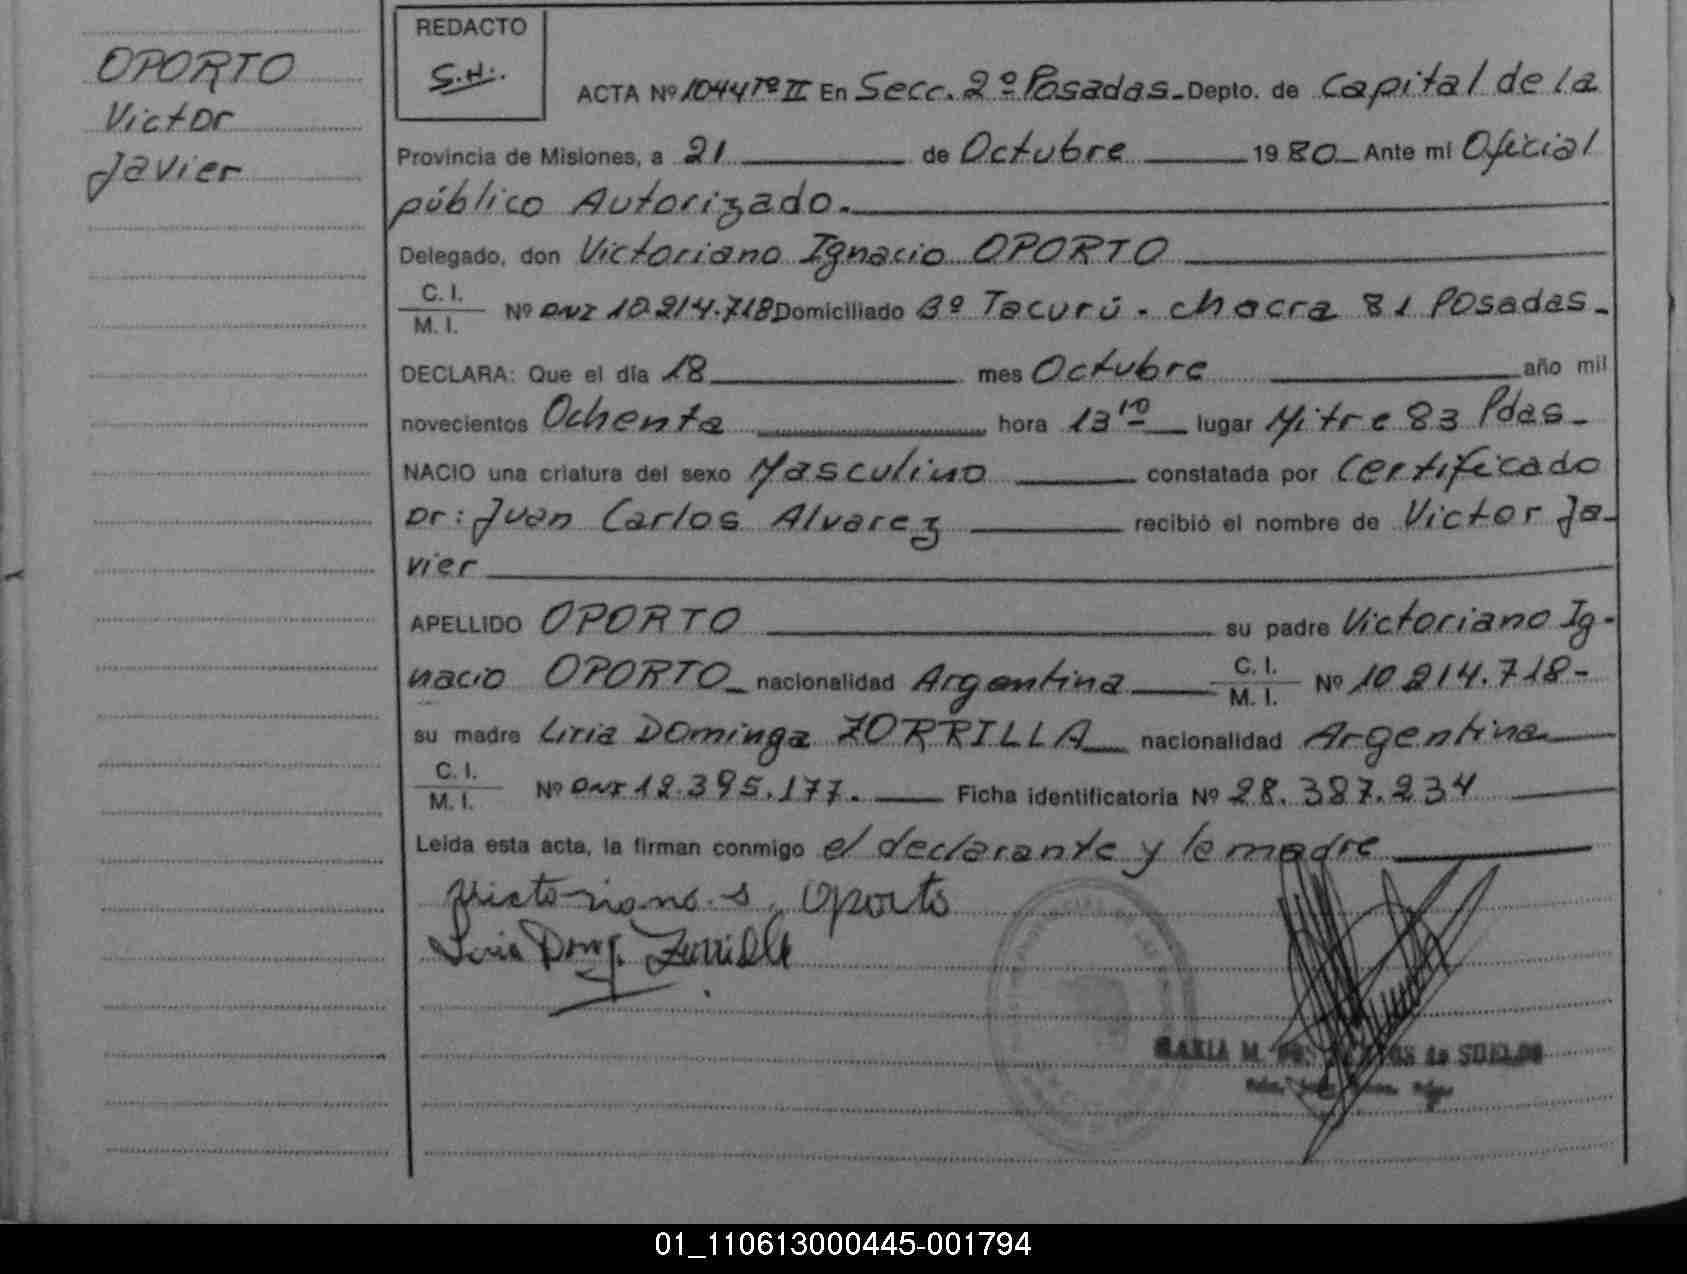 OPORTO
Victor
Javier
REDACTO
S.H.
ACTA Nº 1044 Tº II En Secc. 2º Posadas - Depto. de Capital de la
Provincia de Misiones, a 21 de Octubre 1980 Ante mi Oficial
público Autorizado.
Delegado, don Victoriano Ignacio OPORTO
C. I.
M. I. Nº DNI 10.214.718 Domiciliado Bº Tacurú - chacra 81 Posadas -
DECLARA: Que el día 18 mes Octubre año mil
novecientos Ochenta hora 13 10 lugar Mitre 83 Pdas -
NACIO una criatura del sexo Masculino constatada por Certificado
Dr: Juan Carlos Alvarez recibió el nombre de Victor Ja-
vier
APELLIDO OPORTO su padre Victoriano Ig-
nacio OPORTO nacionalidad Argentina C. I.
M. I. Nº 10.214.718 -
su madre Liria Dominga ZORRILLA nacionalidad Argentina
C. I.
M. I. Nº DNI 12.395.177. Ficha identificatoria Nº 28.387.234
Leida esta acta, la firman conmigo el declarante y la madre
Victoriano . Oporto
Liria Dom Zorrilla
MARIA M. de SUELDO
01_110613000445-001794